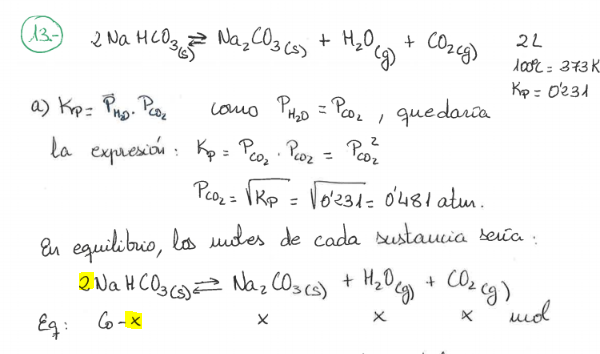 13.- 2NaHCO3(s) ⇄ Na2CO3(s) + H2O(g) + CO2(g) 2L
100ºC = 373K
Kp = 0'231
a) Kp = PH2O · PCO2 como PH2O = PCO2, quedaría
la expresión: Kp = PCO2 · PCO2 = PCO2²
PCO2 = √Kp = √0'231 = 0'481 atm.
En equilibrio, los moles de cada sustancia sería:
2NaHCO3(s) ⇄ Na2CO3(s) + H2O(g) + CO2(g)
Eq: Co-x x x x mol